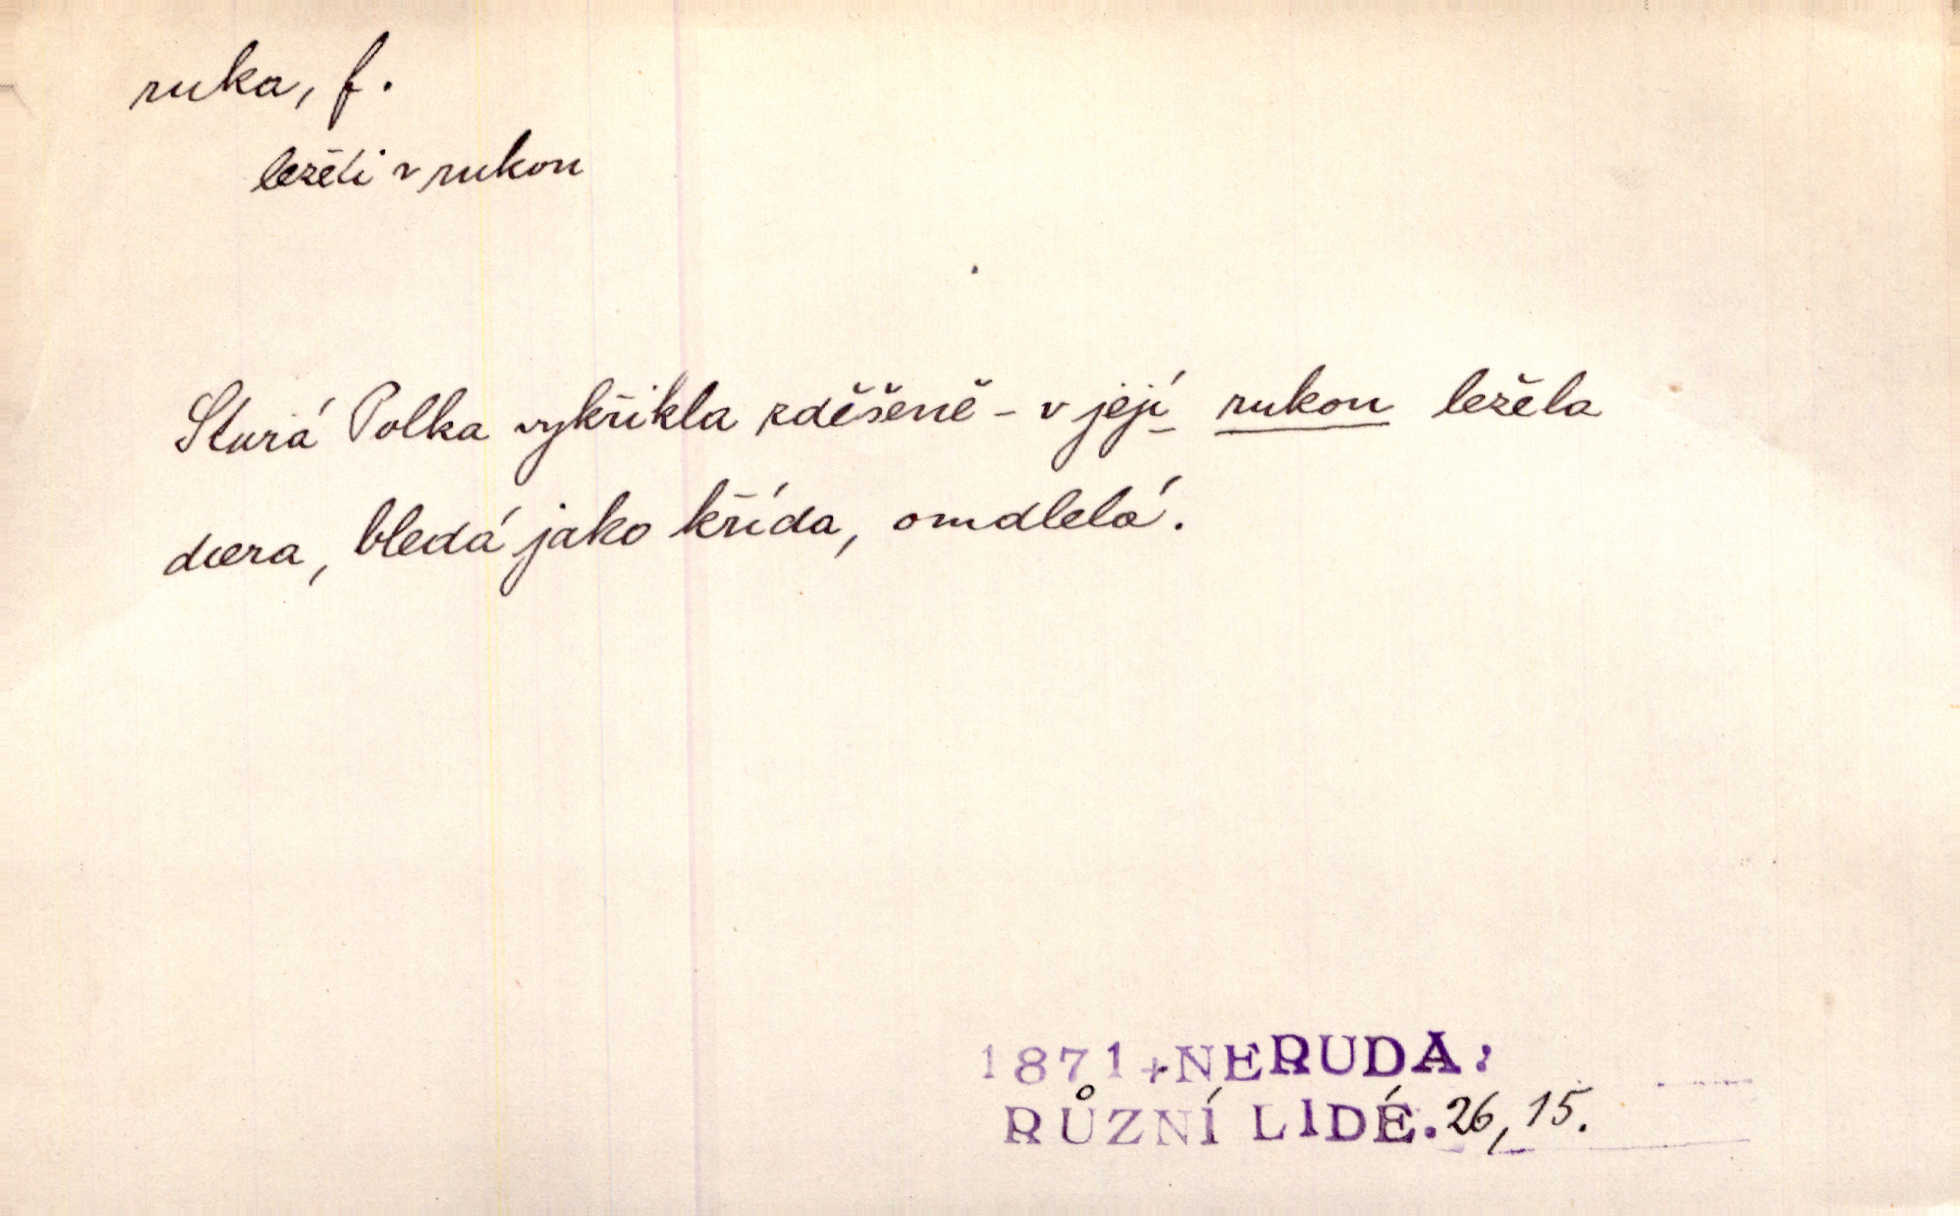 ruka, f.
ležeti v rukou
Stará Polka vykřikla zděšeně - v její rukou ležela
dcera, bledá jako křída, omdlelá.
1871, NERUDA:
RŮZNÍ LIDÉ. 26, 15.